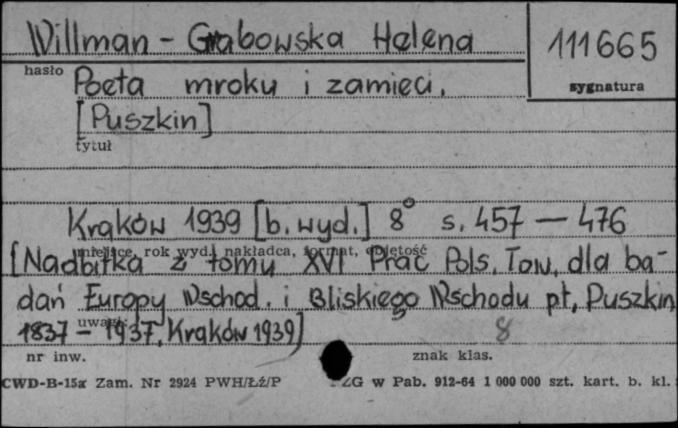 Willman - Grabowska Helena
111665
hasło
sygnatura
Poeta mroku i zamieci.
[Puszkin]
tytuł
Kraków 1939 [b. wyd.] 8° s. 457 — 476
miejsce, rok wyd., nakładca, format, objętość
[Nadbitka z tomu XVI Prac Pols. Tow. dla ba-
dań Europy Wschod. i Bliskiego Wschodu pt. Puszkin
uwagi
1837 - 1937, Kraków 1939]
8
nr inw.
znak klas.
CWD-B-15a Zam. Nr 2924 PWH/ŁŹ/P ZG w Pab. 912-64 1 000 000 szt. kart. b. kl.